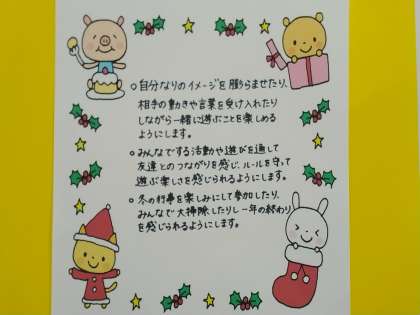 ○自分なりのイメージを膨らませたり、
相手の動きや言葉を受け入れたり
しながら一緒に遊ぶことを楽しめる
ようにします。
○みんなでする活動や遊びを通して
友達とのつながりを感じ、ルールを守って
遊ぶ楽しさを感じられるようにします。
○冬の行事を楽しみにして参加したり、
みんなで大掃除したりし一年の終わり
を感じられるようにします。